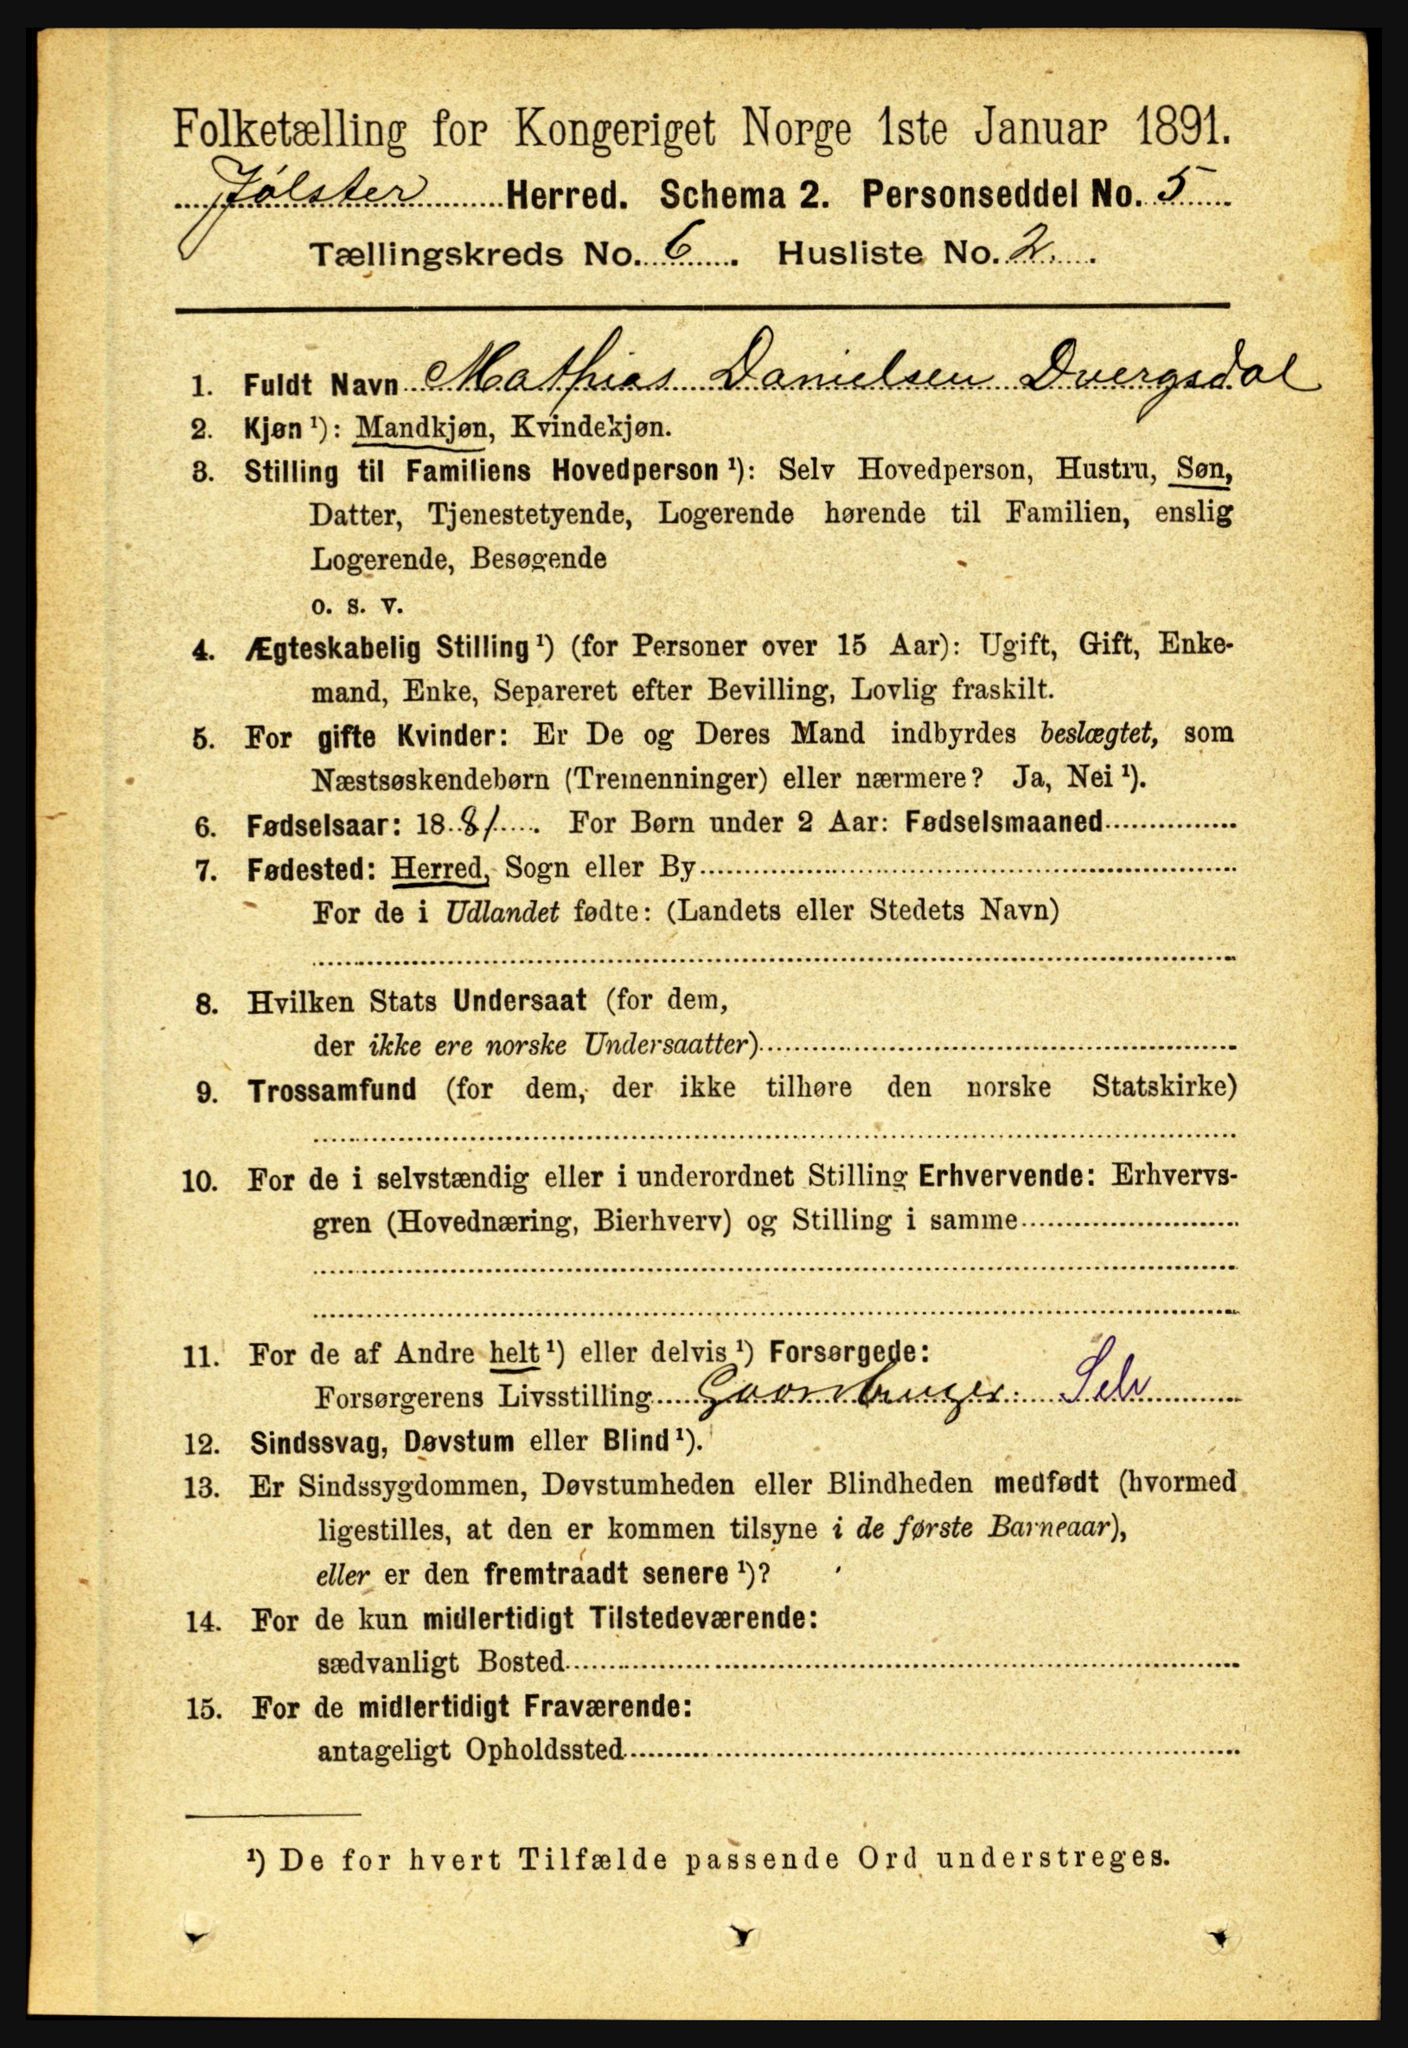 Folketælling for Kongeriget Norge 1ste Januar 1891.
Jølster Herred. Schema 2. Personseddel No. 5
Tællingskreds No. 6. Husliste No. 2.
1. Fuldt Navn Mathias Danielsen Dvergsdal
2. Kjøn ¹): Mandkjøn, Kvindekjøn.
3. Stilling til Familiens Hovedperson ¹): Selv Hovedperson, Hustru, Søn,
Datter, Tjenestetyende, Logerende hørende til Familien, enslig
Logerende, Besøgende
o. s. v.
4. Ægteskabelig Stilling ¹) (for Personer over 15 Aar): Ugift, Gift, Enke-
mand, Enke, Separeret efter Bevilling, Lovlig fraskilt.
5. For gifte Kvinder: Er De og Deres Mand indbyrdes beslægtet, som
Næstsøskendebørn (Tremenninger) eller nærmere? Ja, Nei ¹).
6. Fødselsaar: 1881. For Børn under 2 Aar: Fødselsmaaned
7. Fødested: Herred, Sogn eller By
For de i Udlandet fødte: (Landets eller Stedets Navn)
8. Hvilken Stats Undersaat (for dem,
der ikke ere norske Undersaatter)
9. Trossamfund (for dem, der ikke tilhøre den norske Statskirke)
10. For de i selvstændig eller i underordnet Stilling Erhvervende: Erhvervs-
gren (Hovednæring, Bierhverv) og Stilling i samme
11. For de af Andre helt ¹) eller delvis ¹) Forsørgede:
Forsørgerens Livsstilling Gaardbruger Selv
12. Sindssvag, Døvstum eller Blind ¹).
13. Er Sindssygdommen, Døvstumheden eller Blindheden medfødt (hvormed
ligestilles, at den er kommen tilsyne i de første Barneaar),
eller er den fremtraadt senere ¹)?
14. For de kun midlertidigt Tilstedeværende:
sædvanligt Bosted
15. For de midlertidigt Fraværende:
antageligt Opholdssted
¹) De for hvert Tilfælde passende Ord understreges.